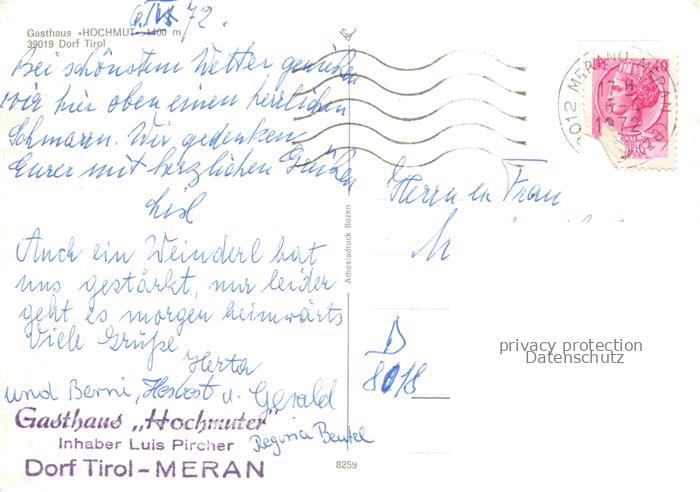 Gasthaus »HOCHMUT« 1400 m
39019 Dorf Tirol
Bei schönstem Wetter genießen
wir hier oben einen herrlichen
Schmarrn. Wir gedenken
Eurer mit herzlichen Grüßen
Auch ein Weinderl hat
uns gestärkt, nur leider
geht es morgen heimwärts
Viele Grüße
Herta
und Berni, Herbert u. Gerald
Regina Beutel
Gasthaus „Hochmuter"
Inhaber Luis Pircher
Dorf Tirol - MERAN
Athesiadruck Bozen
8259
MERANO MERAN
1972
Herrn u Frau
M
D
8018
privacy protection
Datenschutz